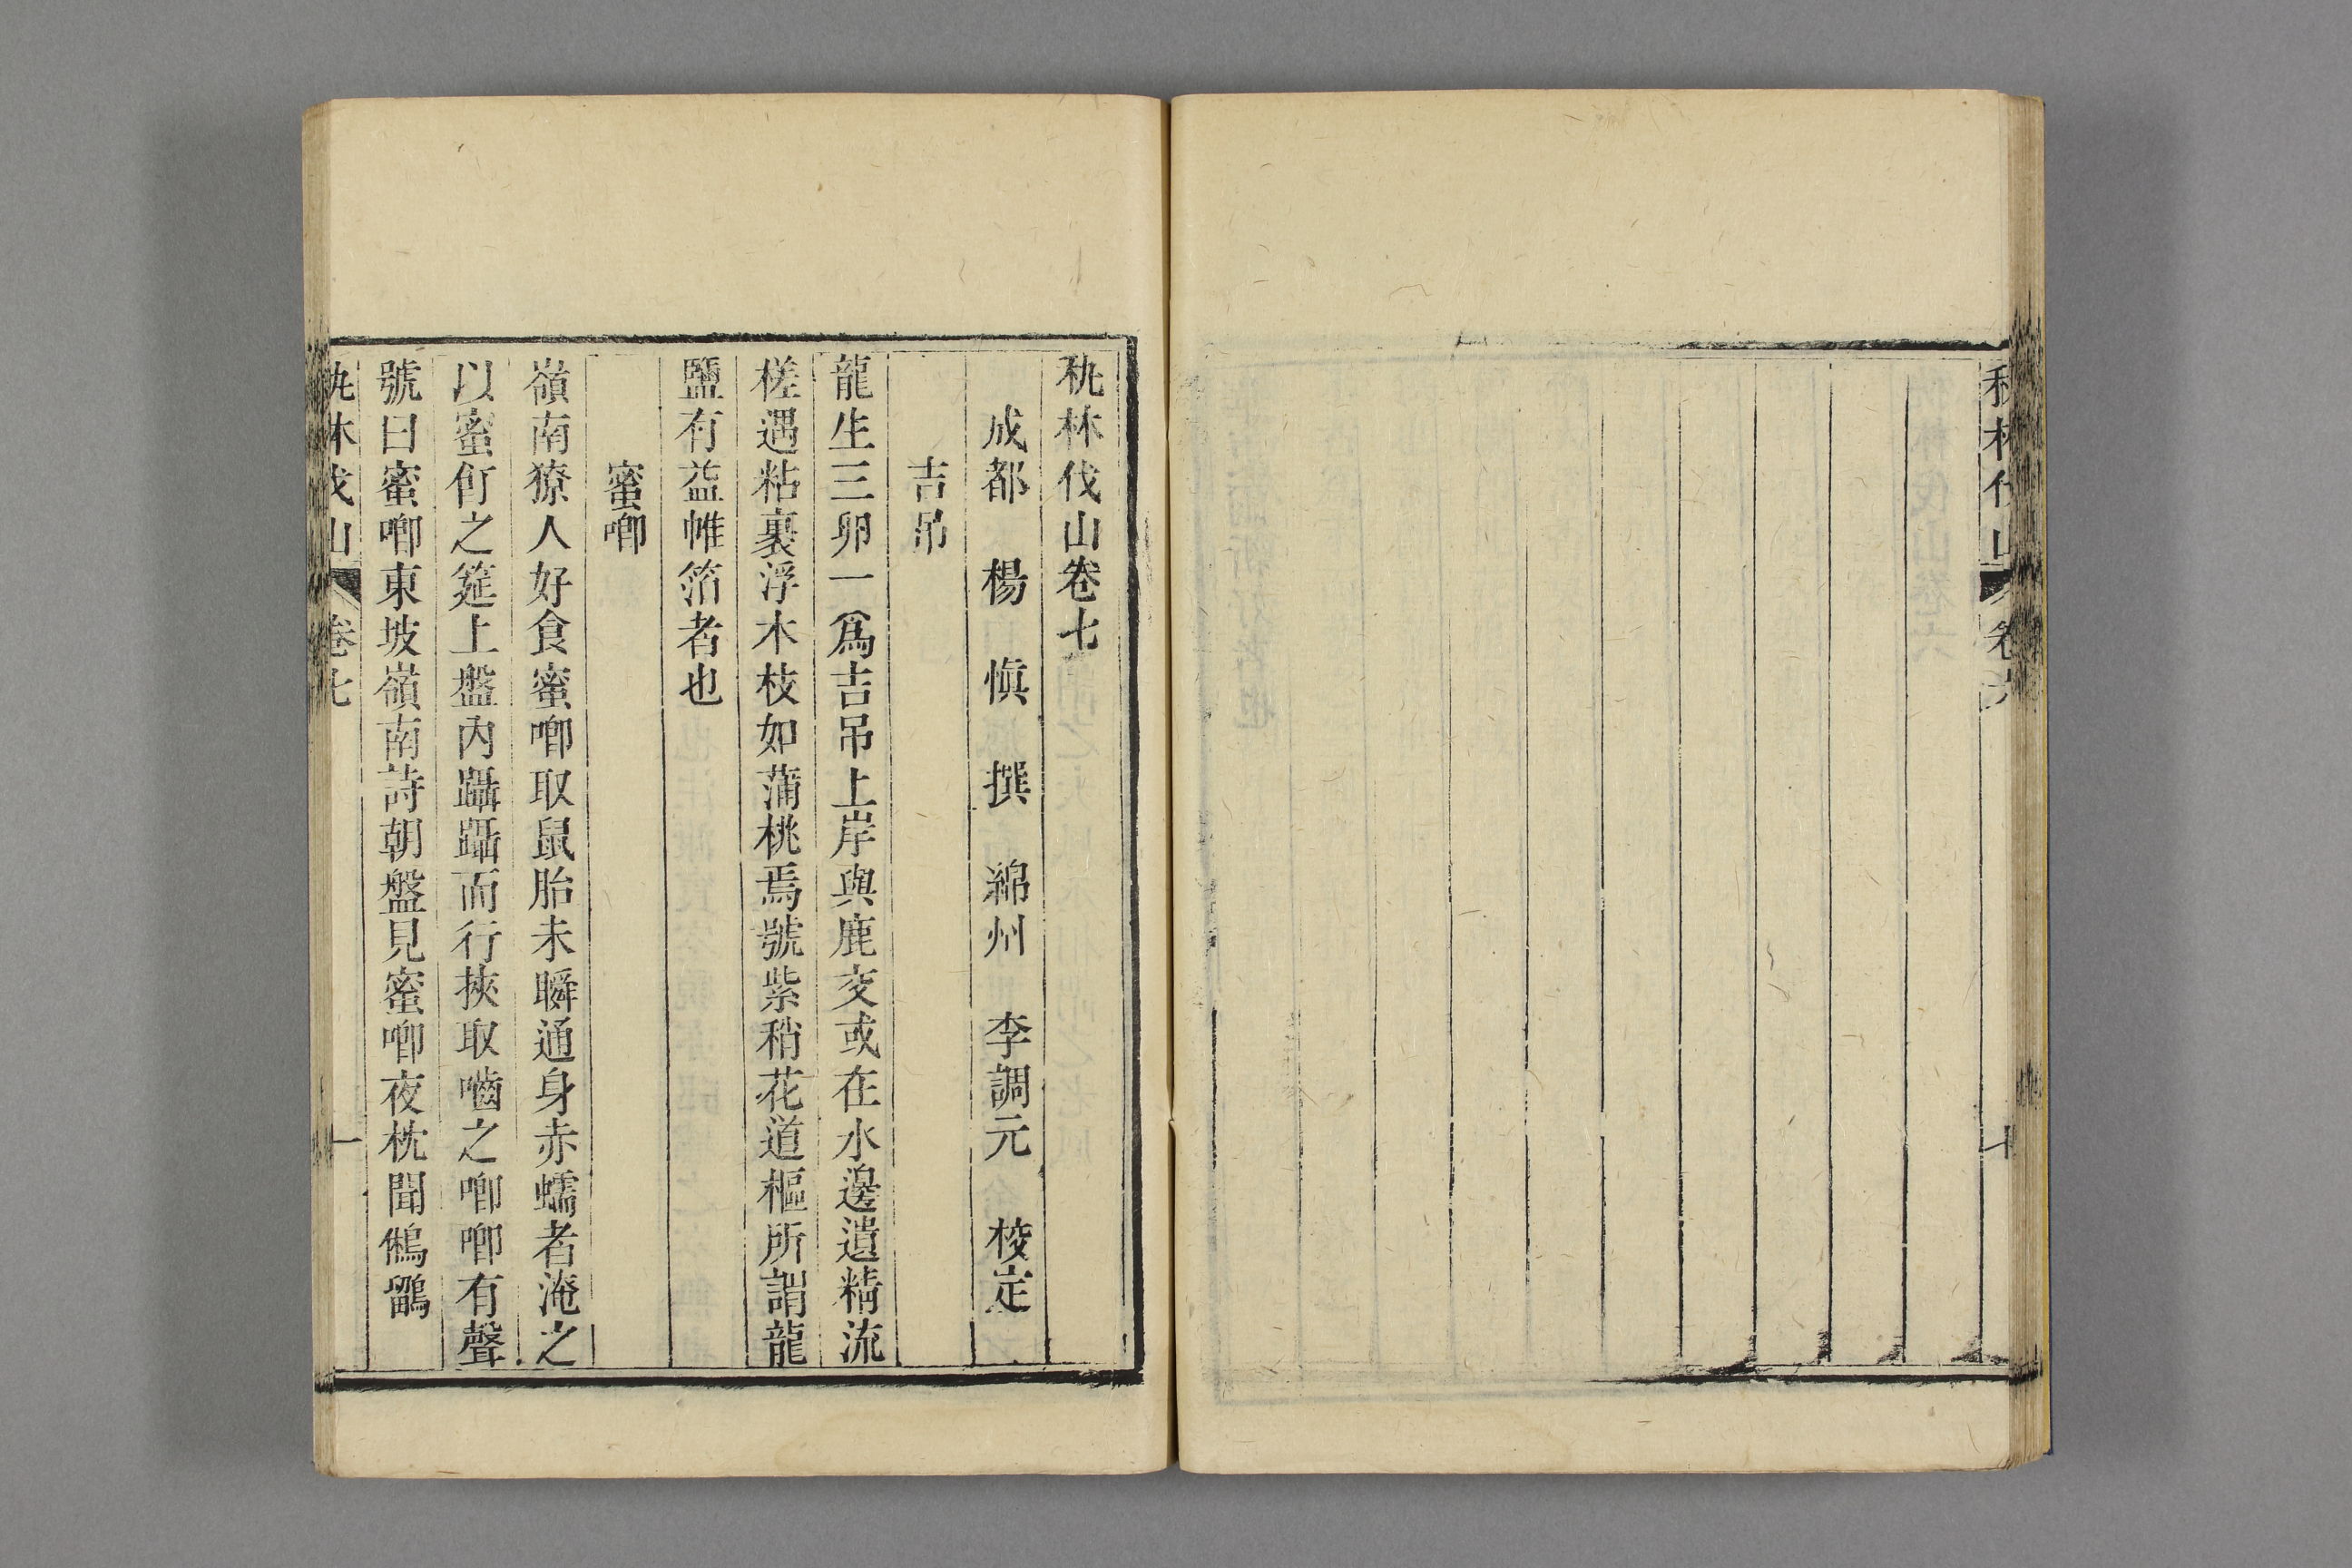 秇林伐山 卷六 十
秇林伐山卷七
成都 楊慎撰 綿州 李調元 校定
吉吊
龍生三卵一為吉吊上岸與鹿交或在水邊遺精流
槎遇粘裹浮木枝如蒲桃焉號紫稍花道樞所謂龍
鹽有益帷箔者也
蜜唧
嶺南獠人好食蜜唧取鼠胎未瞬通身赤蠕者淹之
以蜜飣之筵上盤內躡躡而行挾取嚙之唧唧有聲
號曰蜜唧東坡嶺南詩朝盤見蜜唧夜枕聞鵂鶹
秇林伐山 卷七 一